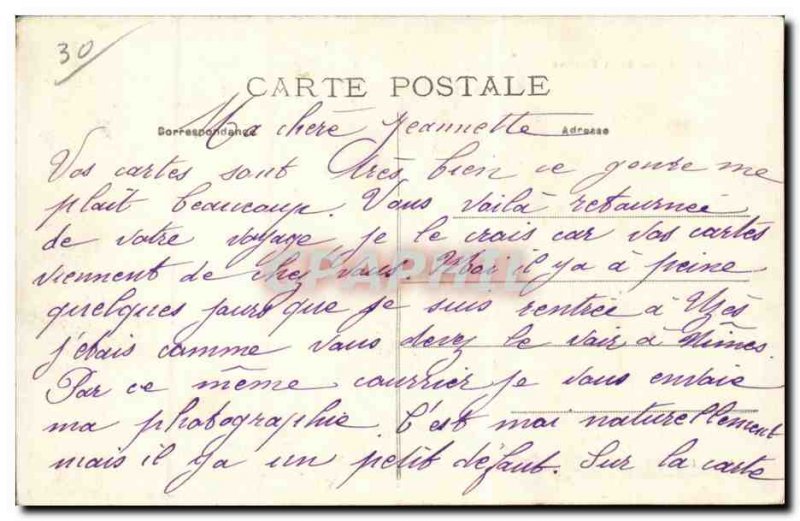 30
CARTE POSTALE
Correspondance Adresse
Ma chère Jeannette
Vos cartes sont très bien ce genre me
plait beaucoup. Vous voilà retournée
de votre voyage, je le crois car vos cartes
viennent de chez vous. Moi il y a à peine
quelques jours que je suis rentrée à Uzès
j'étais comme vous devez le voir à Nîmes.
Par ce même courrier je vous envoie
ma photographie. C'est moi naturellement
mais il y a un petit défaut. Sur la carte
CPAPHIL